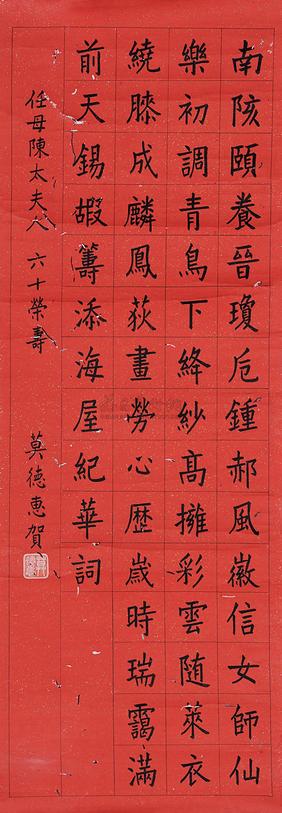 南陔頤養晉瓊卮鍾郝風徽信女師仙
樂初調青鳥下絳紗高擁彩雲隨萊衣
繞膝成麟鳳荻畫勞心歷歲時瑞靄滿
前天錫嘏籌添海屋紀華詞
任母陳太夫人 六十榮壽
莫德惠賀